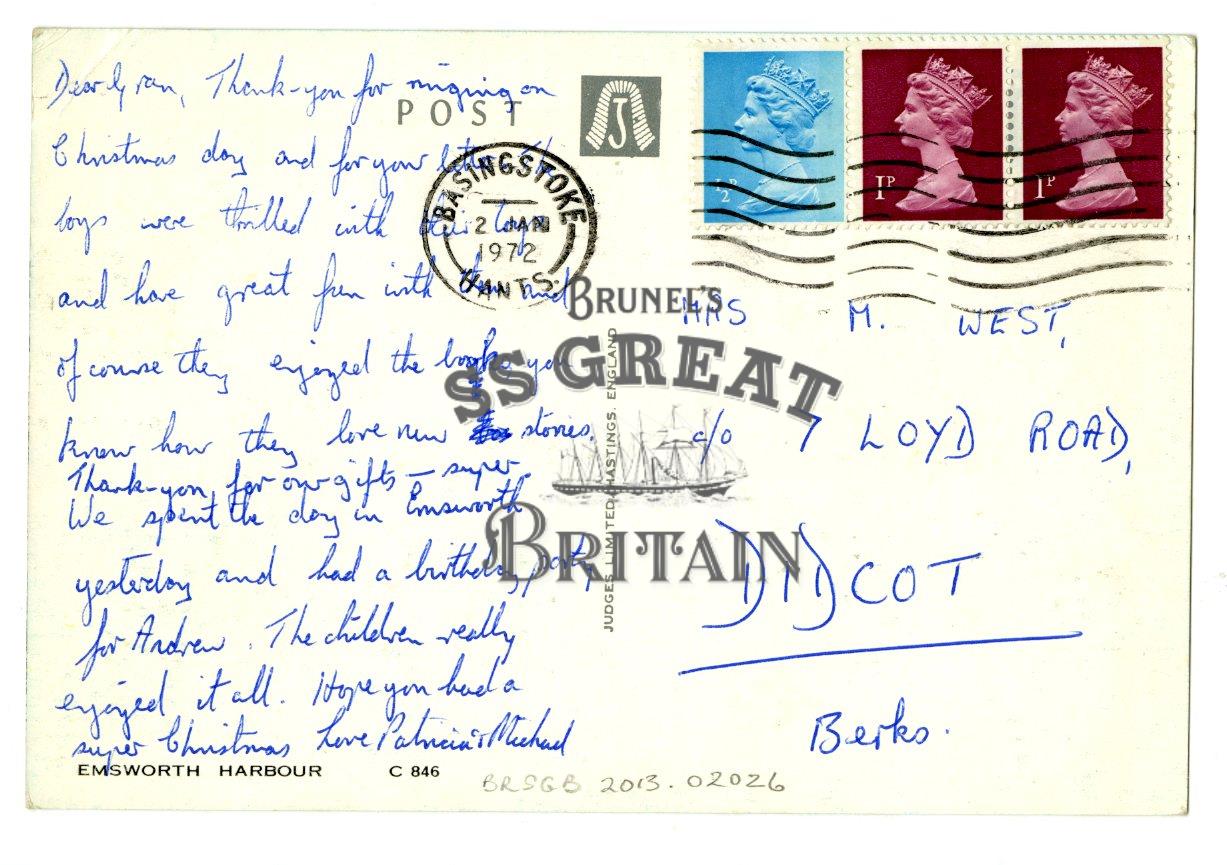 Dear Gran, Thank-you for ringing on
Christmas day and for your letter. The
boys were thrilled with their toys
and have great fun with them and
of course they enjoyed the books you
know how they love new stories.
Thank-you for our gifts – super
We spent the day in Emsworth
yesterday and had a birthday party
for Andrew. The children really
enjoyed it all. Hope you had a
super Christmas Love Patricia & Michael
EMSWORTH HARBOUR C 846
POST
J
BASINGSTOKE
2 JAN
1972
HANTS.
½P
1P
1P
BRUNEL'S
SS GREAT
BRITAIN
JUDGES LIMITED, HASTINGS, ENGLAND
MRS M. WEST,
c/o 7 LOYD ROAD,
DIDCOT
Berks.
BRSGB 2013.02026